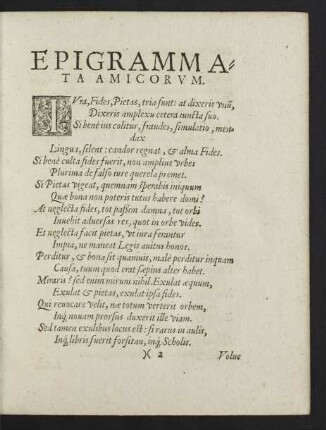 EPIGRAMMA-
TA AMICORVM.
IVra, Fides, Pietas, tria sunt: at dixeris vnũ,
Dixeris amplexu cetera iuncta suo.
Si benè ius colitur, fraudes, simulatio, men-
dax
Lingua, silent: candor regnat, & alma Fides.
Si benè culta fides fuerit, non amplius vrbes
Plurima de falso iure querela premet.
Si Pietas vigeat, quemnam sperabis iniquum
Quæ bona non poteris tutus habere domi?
At neglecta fides, tot passim damna, tot orbi
Inuehit aduersas res, quot in orbe vides.
Et neglecta facit pietas, vt iura ferantur
Impia, ne maneat Legis auitus honos.
Perditur, & bona sit quamuis, malè perditur inquam
Causa, tuum quod erat sæpius alter habet.
Miraris? sed enim mirum nihil. Exulat æquum,
Exulat & pietas, exulat ipsa fides.
Qui reuocare velit, næ totum verterit orbem,
Inq; nouam prorsus duxerit ille viam.
Sed tamen exulibus locus est: si rarius in aulis,
Inq; libris fuerit forsitan, inq; Scholis.
)( 2 Voluc